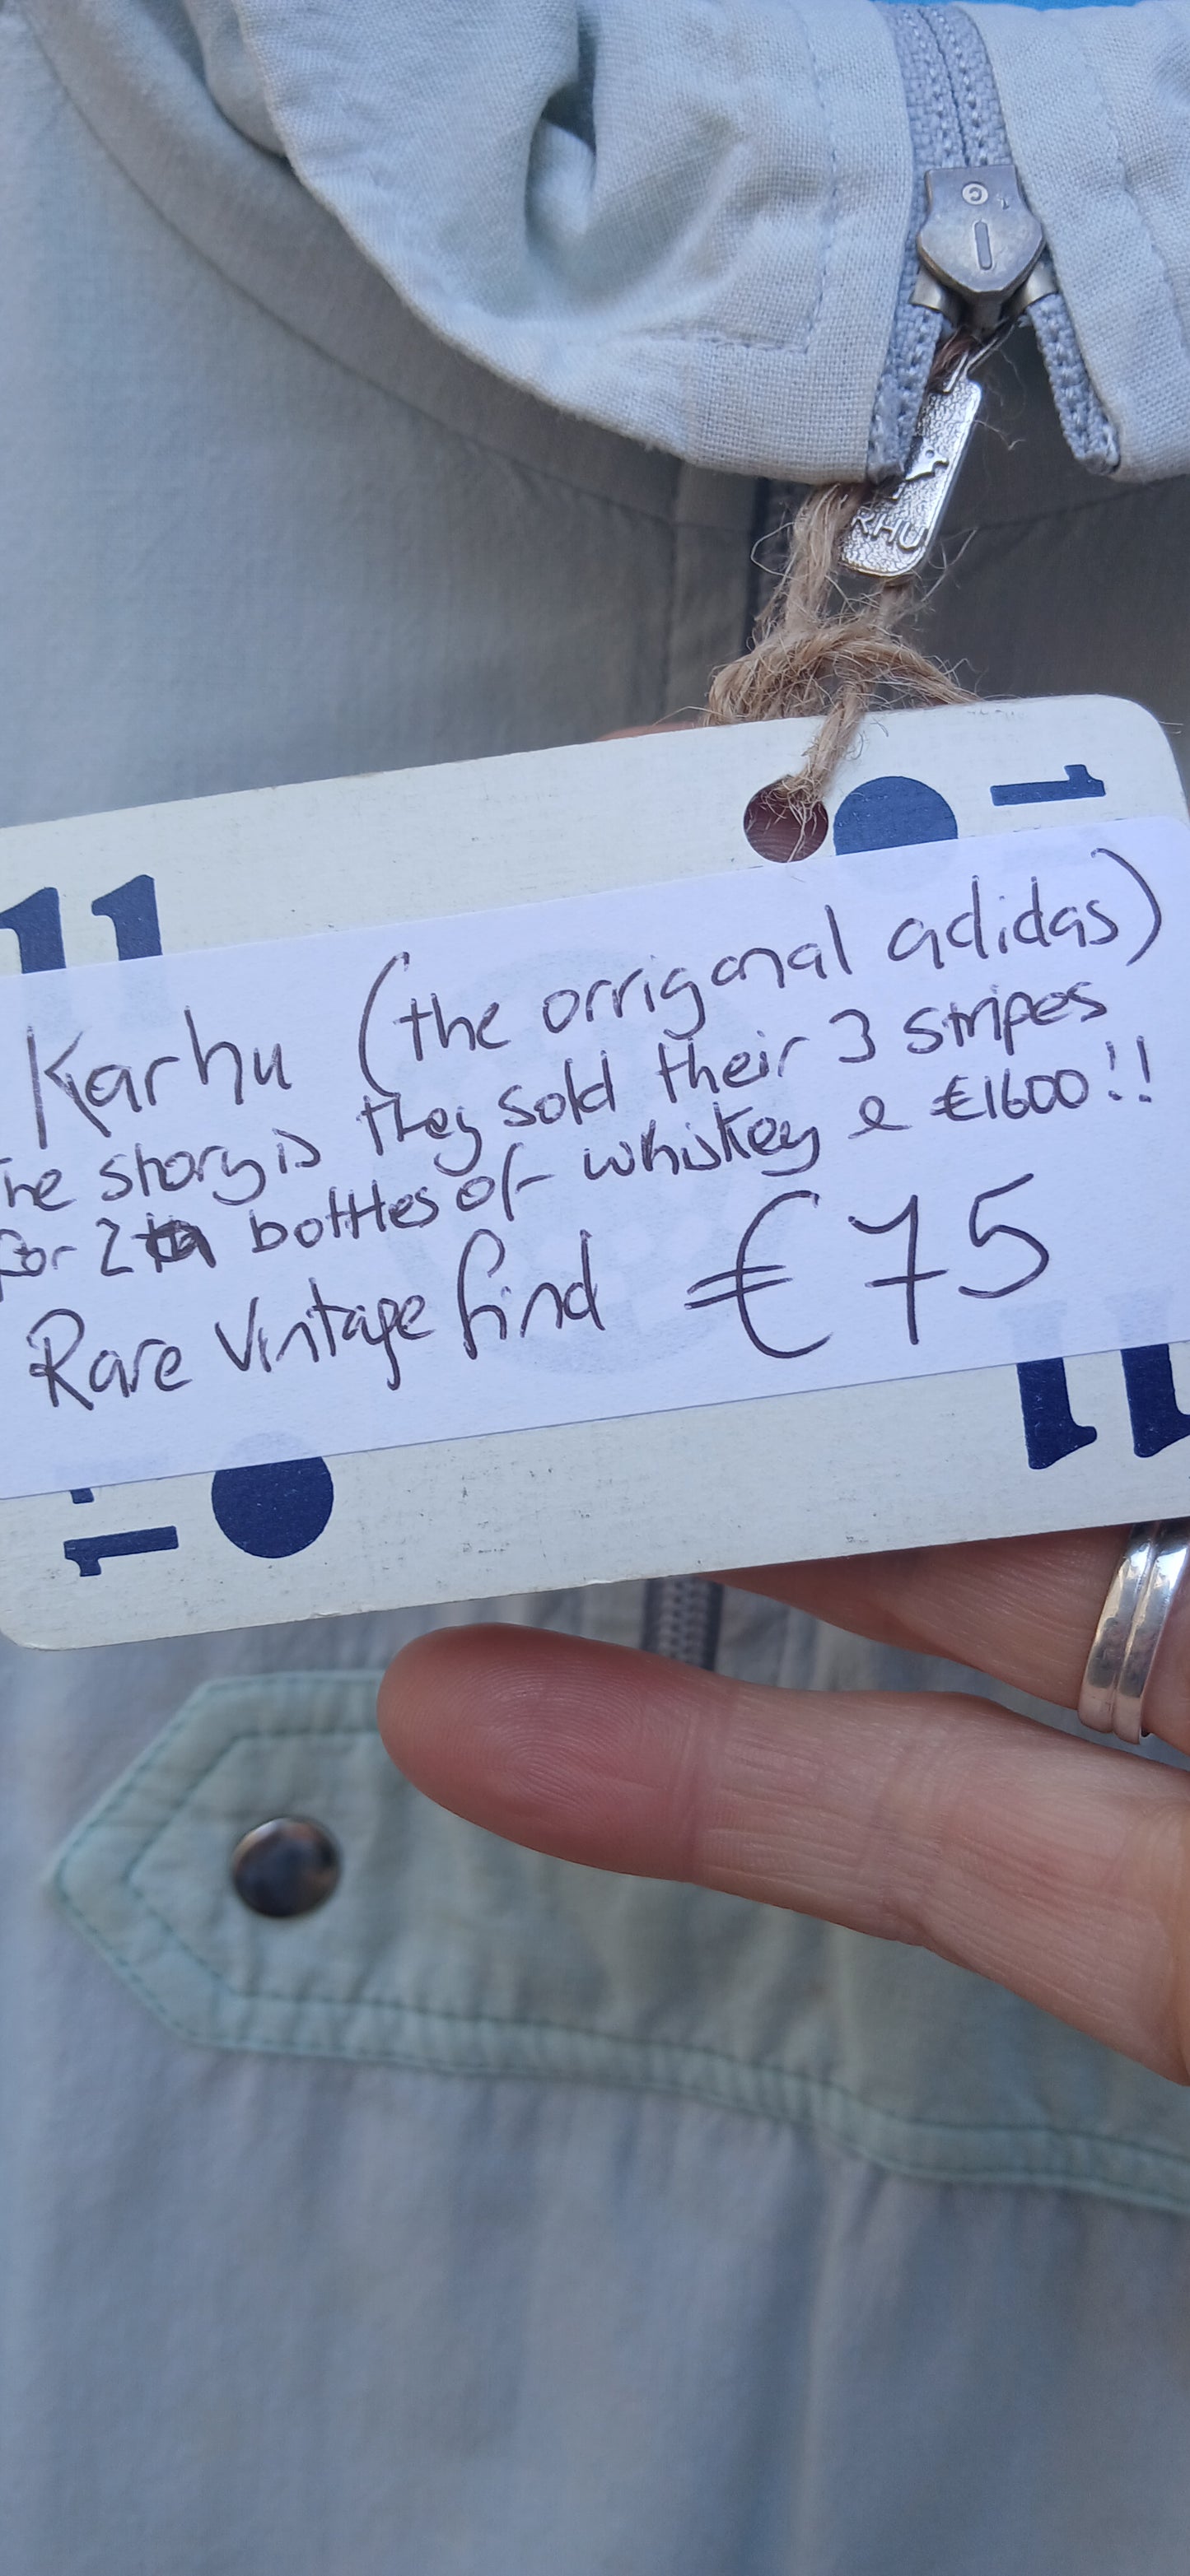 RHU
1
11
Karhu (the orrigonal adidas)
he story is they sold their 3 stripes
for 2 bottles of whiskey & €1600!!
Rare Vintage find €75
11
1